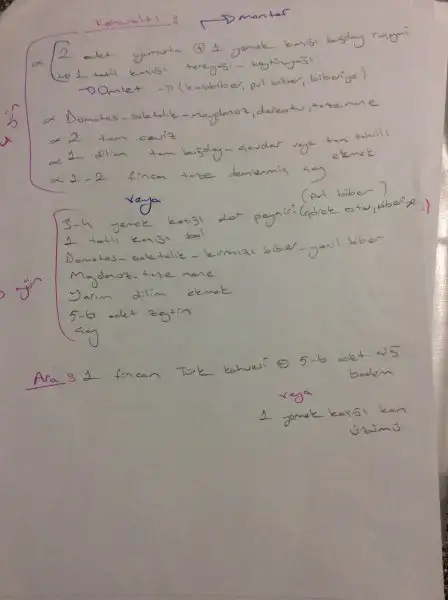 Kahvaltı : → mantar
2 adet yumurta ⊕ 1 yemek kaşığı buğday ruşeymi
1 tatlı kaşığı tereyağı - zeytinyağı
→ Omlet → (karabiber, pul biber, biberiye)
Domates - salatalık - maydanoz, dereotu, taze nane
2 tam ceviz
1 dilim tam buğday - çavdar veya tam tahıllı
ekmek
1-2 fincan taze demlenmiş çay
veya
(pul biber)
3-4 yemek kaşığı lor peyniri (çörek otu, biberiye)
1 tatlı kaşığı bal
Domates - salatalık - kırmızı biber - yeşil biber
Maydanoz - taze nane
Yarım dilim ekmek
5-6 adet zeytin
çay
gün
Ara : 1 fincan Türk kahvesi ⊕ 5-6 adet çiğ
badem
veya
1 yemek kaşığı kan
üzümü